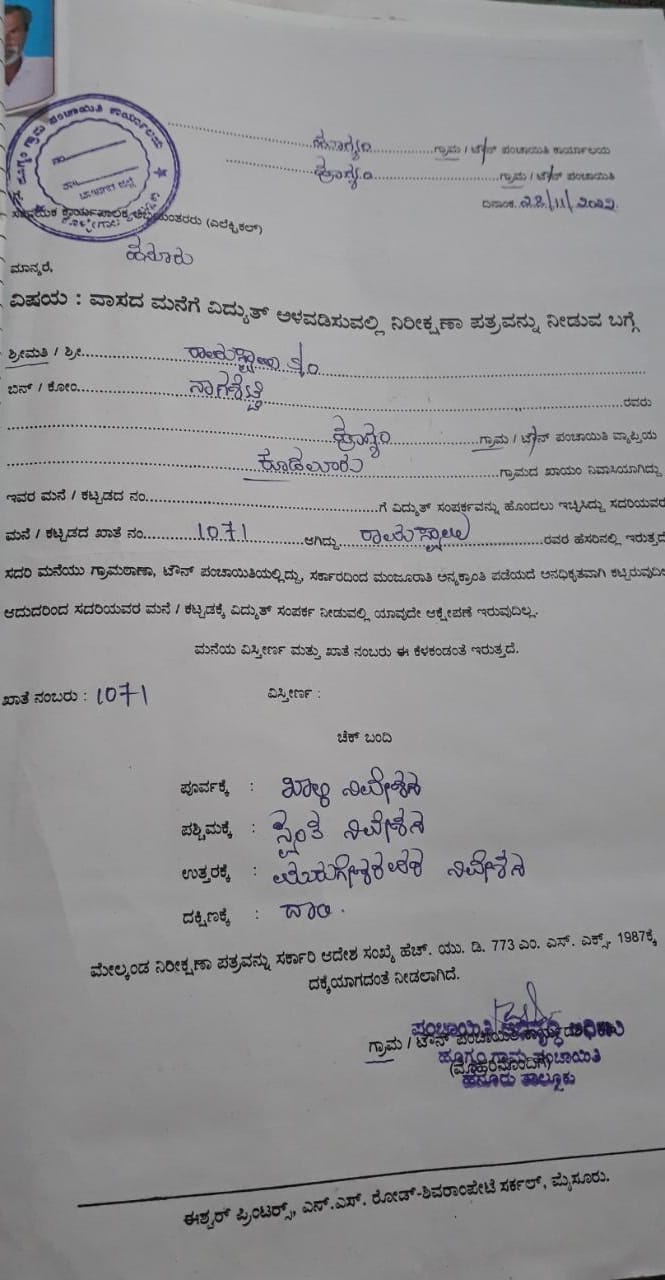 ಗ್ರಾಮ / ಟೌನ್ ಪಂಚಾಯಿತಿ ಕಾರ್ಯಾಲಯ
ಗ್ರಾಮ / ಟೌನ್ ಪಂಚಾಯಿತಿ
ದಿನಾಂಕ: 28/11/2022
ಸಹಾಯಕ ಕಾರ್ಯಪಾಲಕ ಅಭಿಯಂತರರು (ಎಲೆಕ್ಟ್ರಿಕಲ್)
ಹನೂರು
ಮಾನ್ಯರೆ,
ವಿಷಯ : ವಾಸದ ಮನೆಗೆ ವಿದ್ಯುತ್ ಅಳವಡಿಸುವಲ್ಲಿ ನಿರೀಕ್ಷಣಾ ಪತ್ರವನ್ನು ನೀಡುವ ಬಗ್ಗೆ
ಶ್ರೀಮತಿ / ಶ್ರೀ
ಬಿನ್ / ಕೋಂ ನಾಗಶೆಟ್ಟಿ ರವರು
ಗ್ರಾಮ / ಟೌನ್ ಪಂಚಾಯಿತಿ ವ್ಯಾಪ್ತಿಯ
ಕೂಡಲೂರು ಗ್ರಾಮದ ಖಾಯಂ ನಿವಾಸಿಯಾಗಿದ್ದು
ಇವರ ಮನೆ / ಕಟ್ಟಡದ ನಂ. ಗೆ ವಿದ್ಯುತ್ ಸಂಪರ್ಕವನ್ನು ಹೊಂದಲು ಇಚ್ಛಿಸಿದ್ದು ಸದರಿಯವರ
ಮನೆ / ಕಟ್ಟಡದ ಖಾತೆ ನಂ. 1071 ಆಗಿದ್ದು ರವರ ಹೆಸರಿನಲ್ಲಿ ಇರುತ್ತದೆ
ಸದರಿ ಮನೆಯು ಗ್ರಾಮಠಾಣಾ, ಟೌನ್ ಪಂಚಾಯಿತಿಯಲ್ಲಿದ್ದು, ಸರ್ಕಾರದಿಂದ ಮಂಜೂರಾತಿ ಅನ್ಯಕ್ರಾಂತಿ ಪಡೆಯದೆ ಅನಧಿಕೃತವಾಗಿ
ಆದುದರಿಂದ ಸದರಿಯವರ ಮನೆ / ಕಟ್ಟಡಕ್ಕೆ ವಿದ್ಯುತ್ ಸಂಪರ್ಕ ನೀಡುವಲ್ಲಿ ಯಾವುದೇ ಆಕ್ಷೇಪಣೆ ಇರುವುದಿಲ್ಲ.
ಮನೆಯ ವಿಸ್ತೀರ್ಣ ಮತ್ತು ಖಾತೆ ನಂಬರು ಈ ಕೆಳಕಂಡಂತೆ ಇರುತ್ತದೆ.
ಖಾತೆ ನಂಬರು : 1071 ವಿಸ್ತೀರ್ಣ :
ಚೆಕ್ ಬಂದಿ
ಪೂರ್ವಕ್ಕೆ : ಖಾಲಿ ನಿವೇಶನ
ಪಶ್ಚಿಮಕ್ಕೆ : ಸ್ವಂತ ನಿವೇಶನ
ಉತ್ತರಕ್ಕೆ : ನಿವೇಶನ
ದಕ್ಷಿಣಕ್ಕೆ : ದಾರಿ.
ಮೇಲ್ಕಂಡ ನಿರೀಕ್ಷಣಾ ಪತ್ರವನ್ನು ಸರ್ಕಾರಿ ಆದೇಶ ಸಂಖ್ಯೆ ಹೆಚ್. ಯು. ಡಿ. 773 ಎಂ. ಎಸ್. ಎಕ್ಸ್. 1987ಕ್ಕೆ
ದಕ್ಕೆಯಾಗದಂತೆ ನೀಡಲಾಗಿದೆ.
ಗ್ರಾಮ / ಟೌನ್ ಪಂಚಾಯಿತಿ
(ಮೊಹರಿನೊಂದಿಗೆ)
ಹನೂರು ತಾಲ್ಲೂಕು
ಈಶ್ವರ್ ಪ್ರಿಂಟರ್ಸ್, ಎನ್.ಎಸ್. ರೋಡ್-ಶಿವರಾಂಪೇಟೆ ಸರ್ಕಲ್, ಮೈಸೂರು.